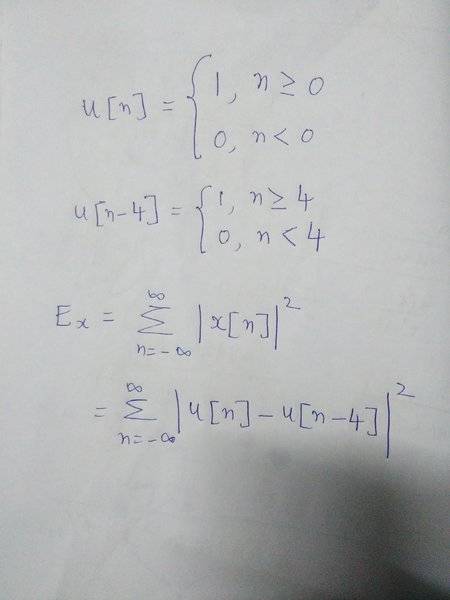 u[n] = { 1, n ≥ 0
0, n < 0
u[n-4] = { 1, n ≥ 4
0, n < 4
Ex = ∑ n=-∞ ∞ |x[n]|²
= ∑ n=-∞ ∞ |u[n] - u[n-4]|²